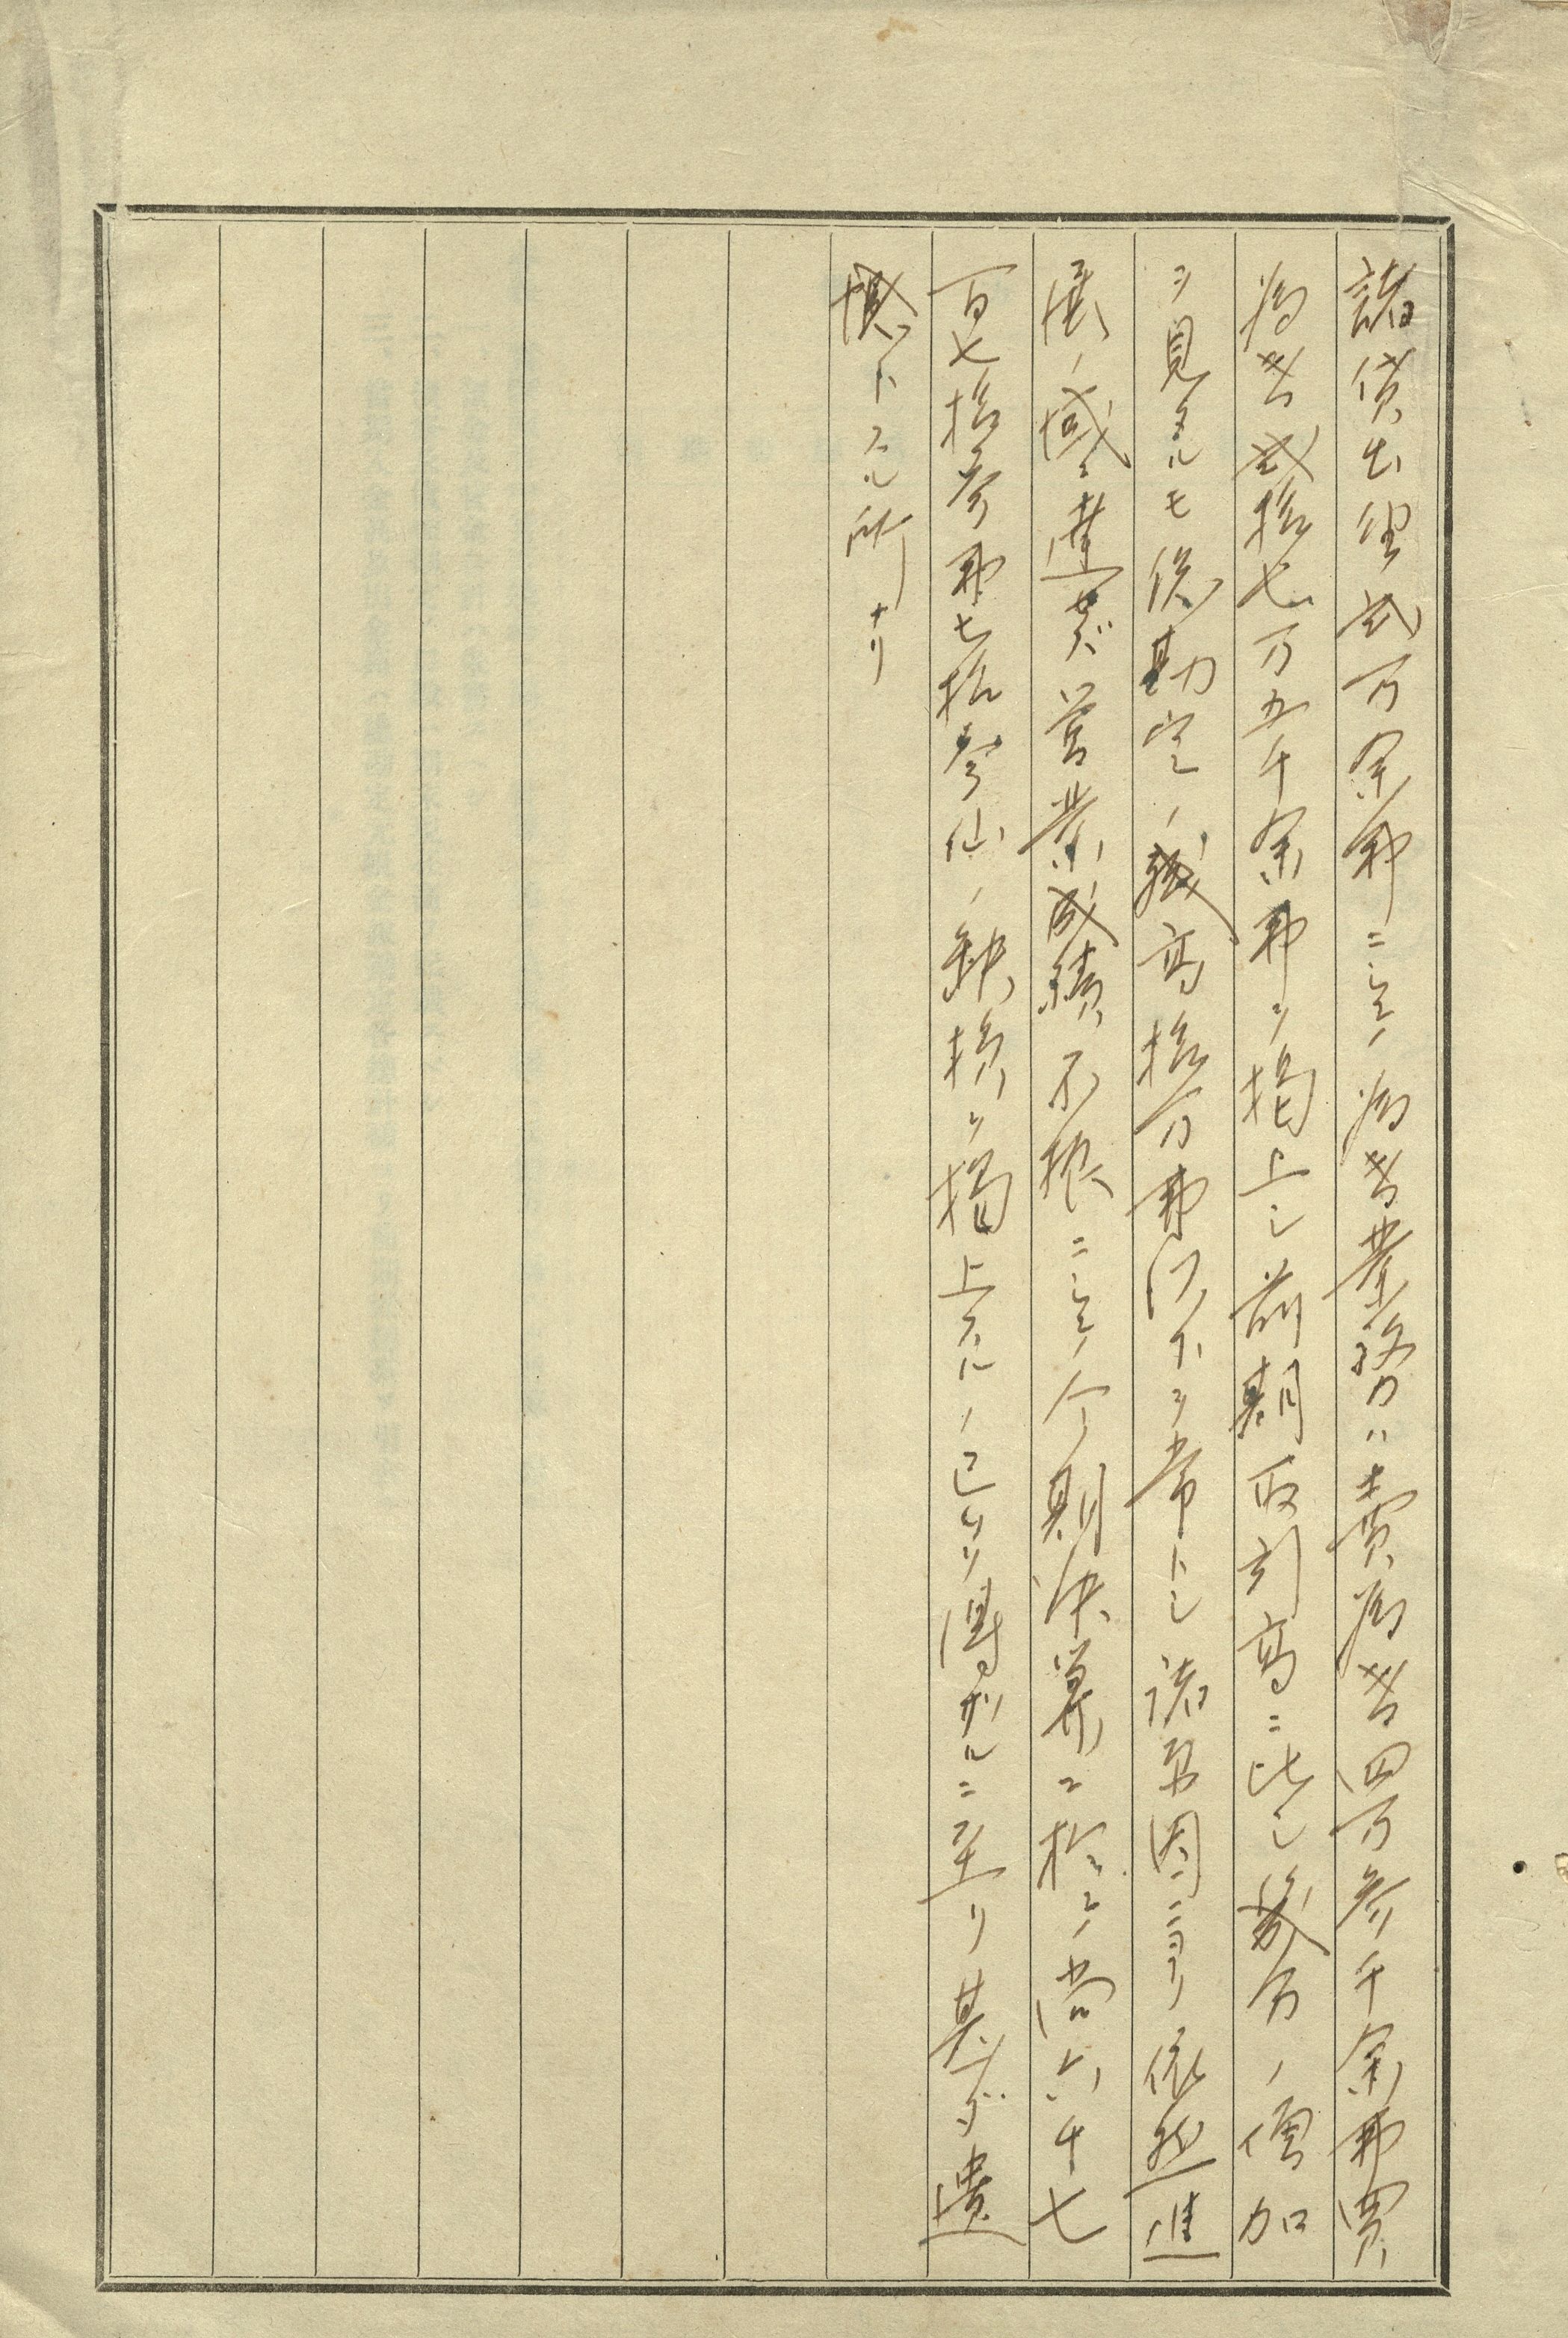 諸貸出望弐万余弗ニシテ為替業務ハ売為替四万参千余弗買
為替弐拾七万五千余弗ヲ掲上シ前期取引高ニ比シ幾分ノ増加
ヲ見タルモ預勘定ノ残高拾万弗以下ヲ常トシ諸原因ニヨリ依然進
展ノ域ニ達セズ営業成績不振ニシテ今期決算ニ於テ尚六千七
百七拾参弗七拾参仙ノ欠損ヲ掲上スルノ已ムヲ得ザルニ至リ甚ダ遺
憾トスル所ナリ